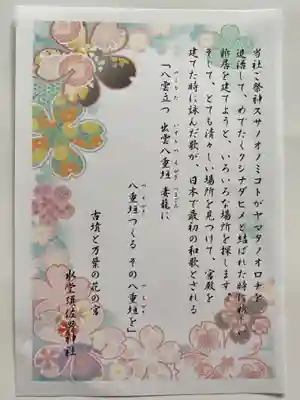 当社ご祭神スサノオノミコトがヤマタノオロチを
退治して、めでたくクシナダヒメと結ばれた時に
新居を建てようと、いろいろな場所を探します。
そして、とても清々しい場所を見つけて、宮殿を
建てた時に詠んだ歌が、日本で最初の和歌とされる
「八雲立つ 出雲八重垣 妻籠に
八重垣つくる その八重垣を」
古墳と万葉の花の宮
水堂須佐男神社